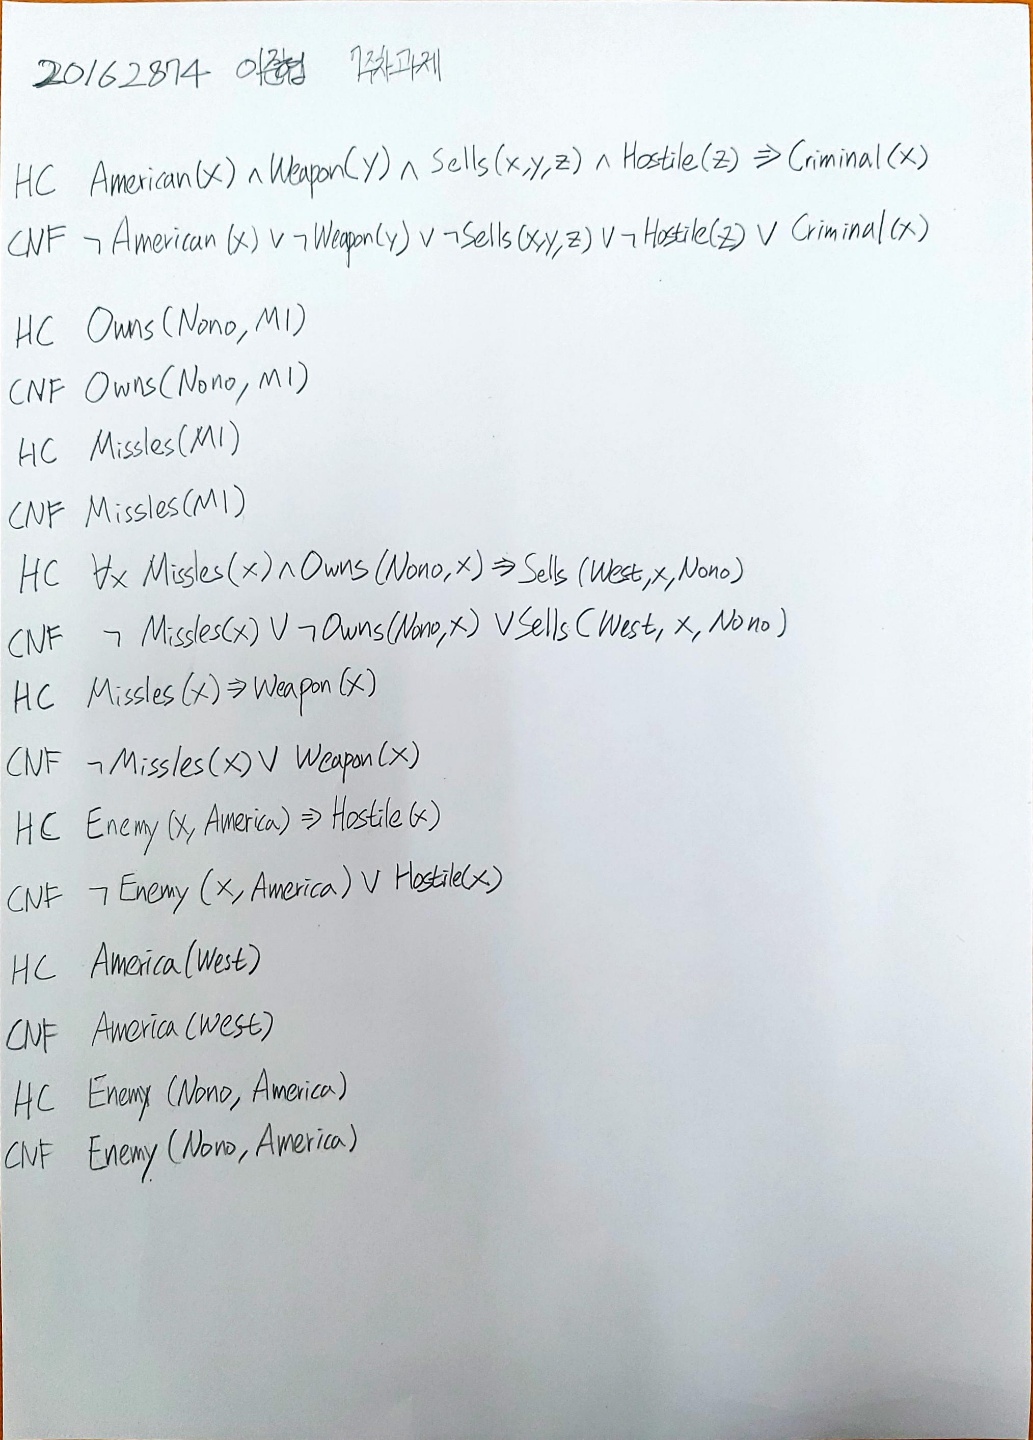 20162874 이준형 7주차과제
HC American(x) ∧ Weapon(y) ∧ Sells(x,y,z) ∧ Hostile(z) ⇒ Criminal(x)
CNF ¬ American(x) ∨ ¬ Weapon(y) ∨ ¬ Sells(x,y,z) ∨ ¬ Hostile(z) ∨ Criminal(x)
HC Owns(Nono, M1)
CNF Owns(Nono, M1)
HC Missles(M1)
CNF Missles(M1)
HC ∀x Missles(x) ∧ Owns(Nono,x) ⇒ Sells(West,x,Nono)
CNF ¬ Missles(x) ∨ ¬ Owns(Nono,x) ∨ Sells(West, x, Nono)
HC Missles(x) ⇒ Weapon(x)
CNF ¬ Missles(x) ∨ Weapon(x)
HC Enemy(x, America) ⇒ Hostile(x)
CNF ¬ Enemy(x, America) ∨ Hostile(x)
HC America(West)
CNF America(West)
HC Enemy(Nono, America)
CNF Enemy(Nono, America)